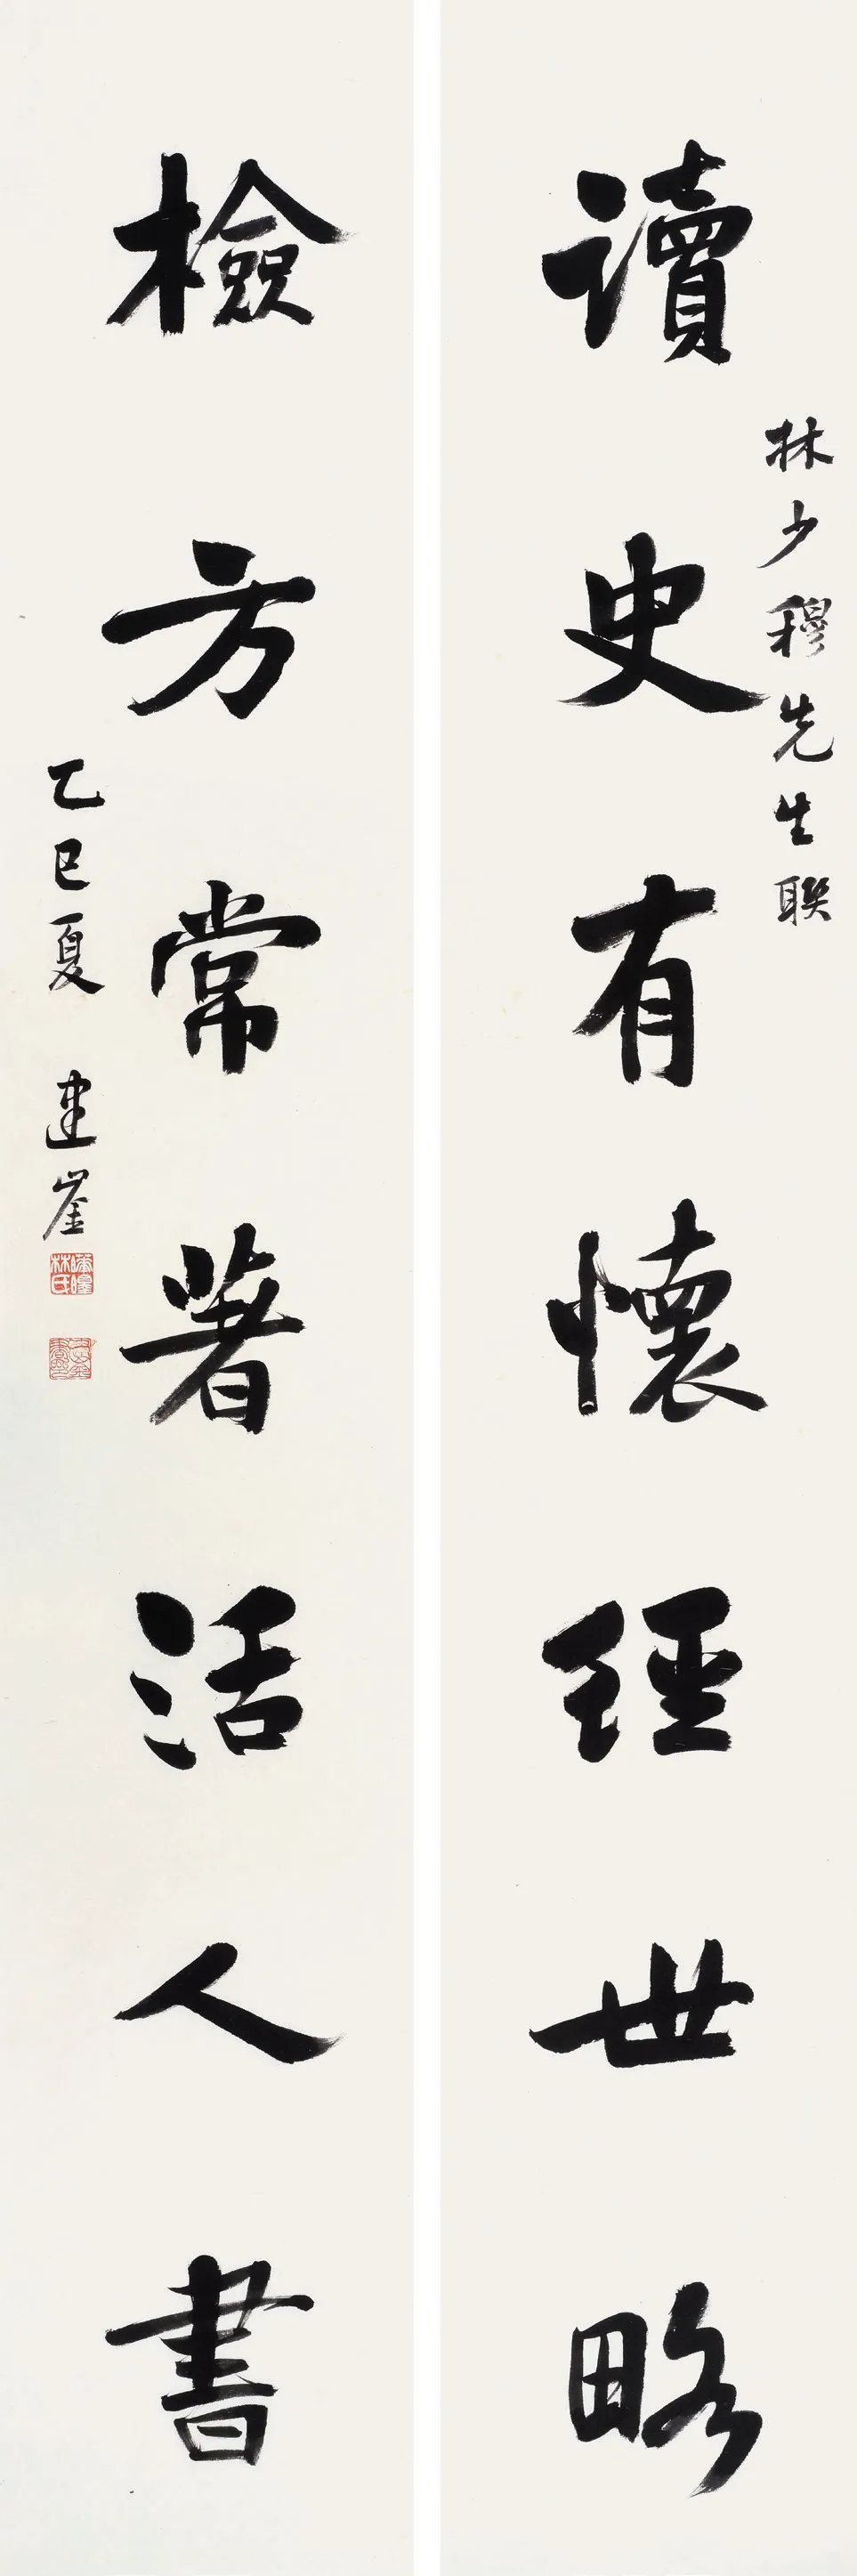 林少穆先生聯
讀史有懷經世略
檢方常著活人書
乙巳夏 建崟